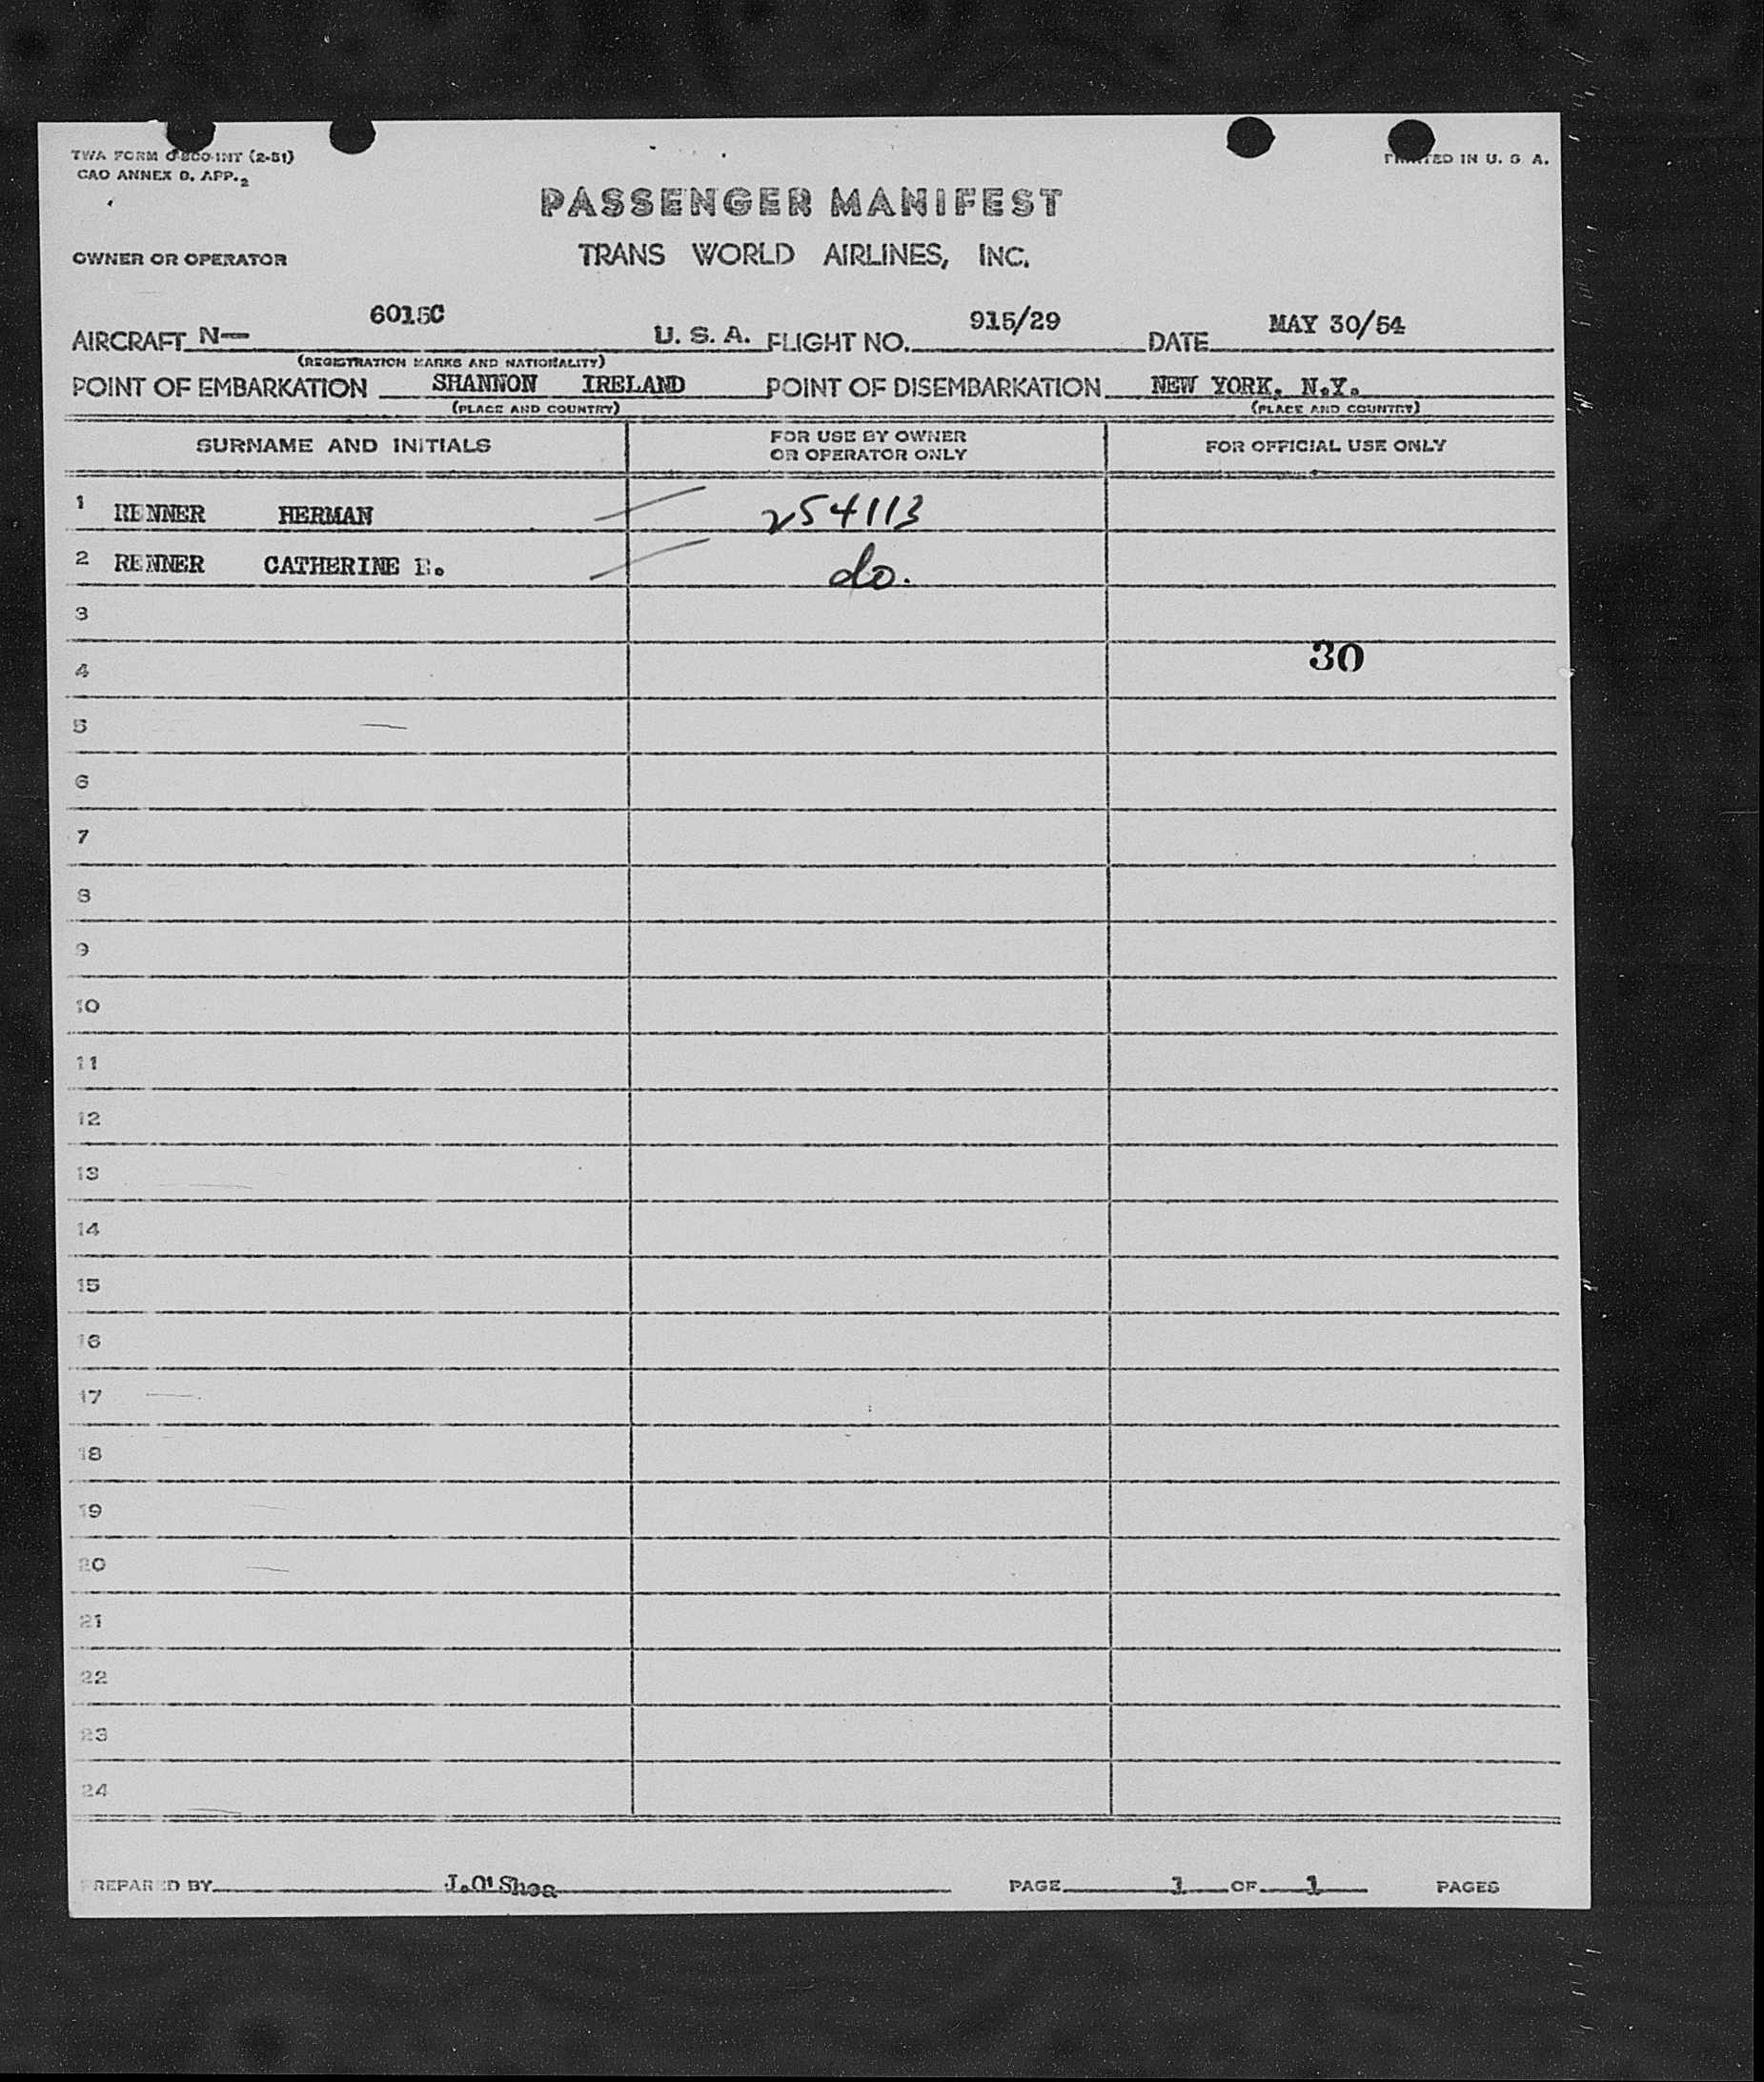 TWA FORM
CAO ANNEX 9. APP. 2
PRINTED IN U. S. A.
PASSENGER MANIFEST
OWNER OR OPERATOR TRANS WORLD AIRLINES, INC.
AIRCRAFT N— 6015C U. S. A. FLIGHT NO. 915/29 DATE MAY 30/54
(REGISTRATION MARKS AND NATIONALITY)
POINT OF EMBARKATION SHANNON IRELAND POINT OF DISEMBARKATION NEW YORK, N.Y.
(PLACE AND COUNTRY) (PLACE AND COUNTRY)
SURNAME AND INITIALS FOR USE BY OWNER OR OPERATOR ONLY FOR OFFICIAL USE ONLY
1 RENNER HERMAN 254113
2 RENNER CATHERINE do.
3
30
4
5
6
7
8
9
10
11
12
13
14
15
16
17
18
19
20
21
22
23
24
PREPARED BY J.O'Shea PAGE 1 OF 1 PAGES